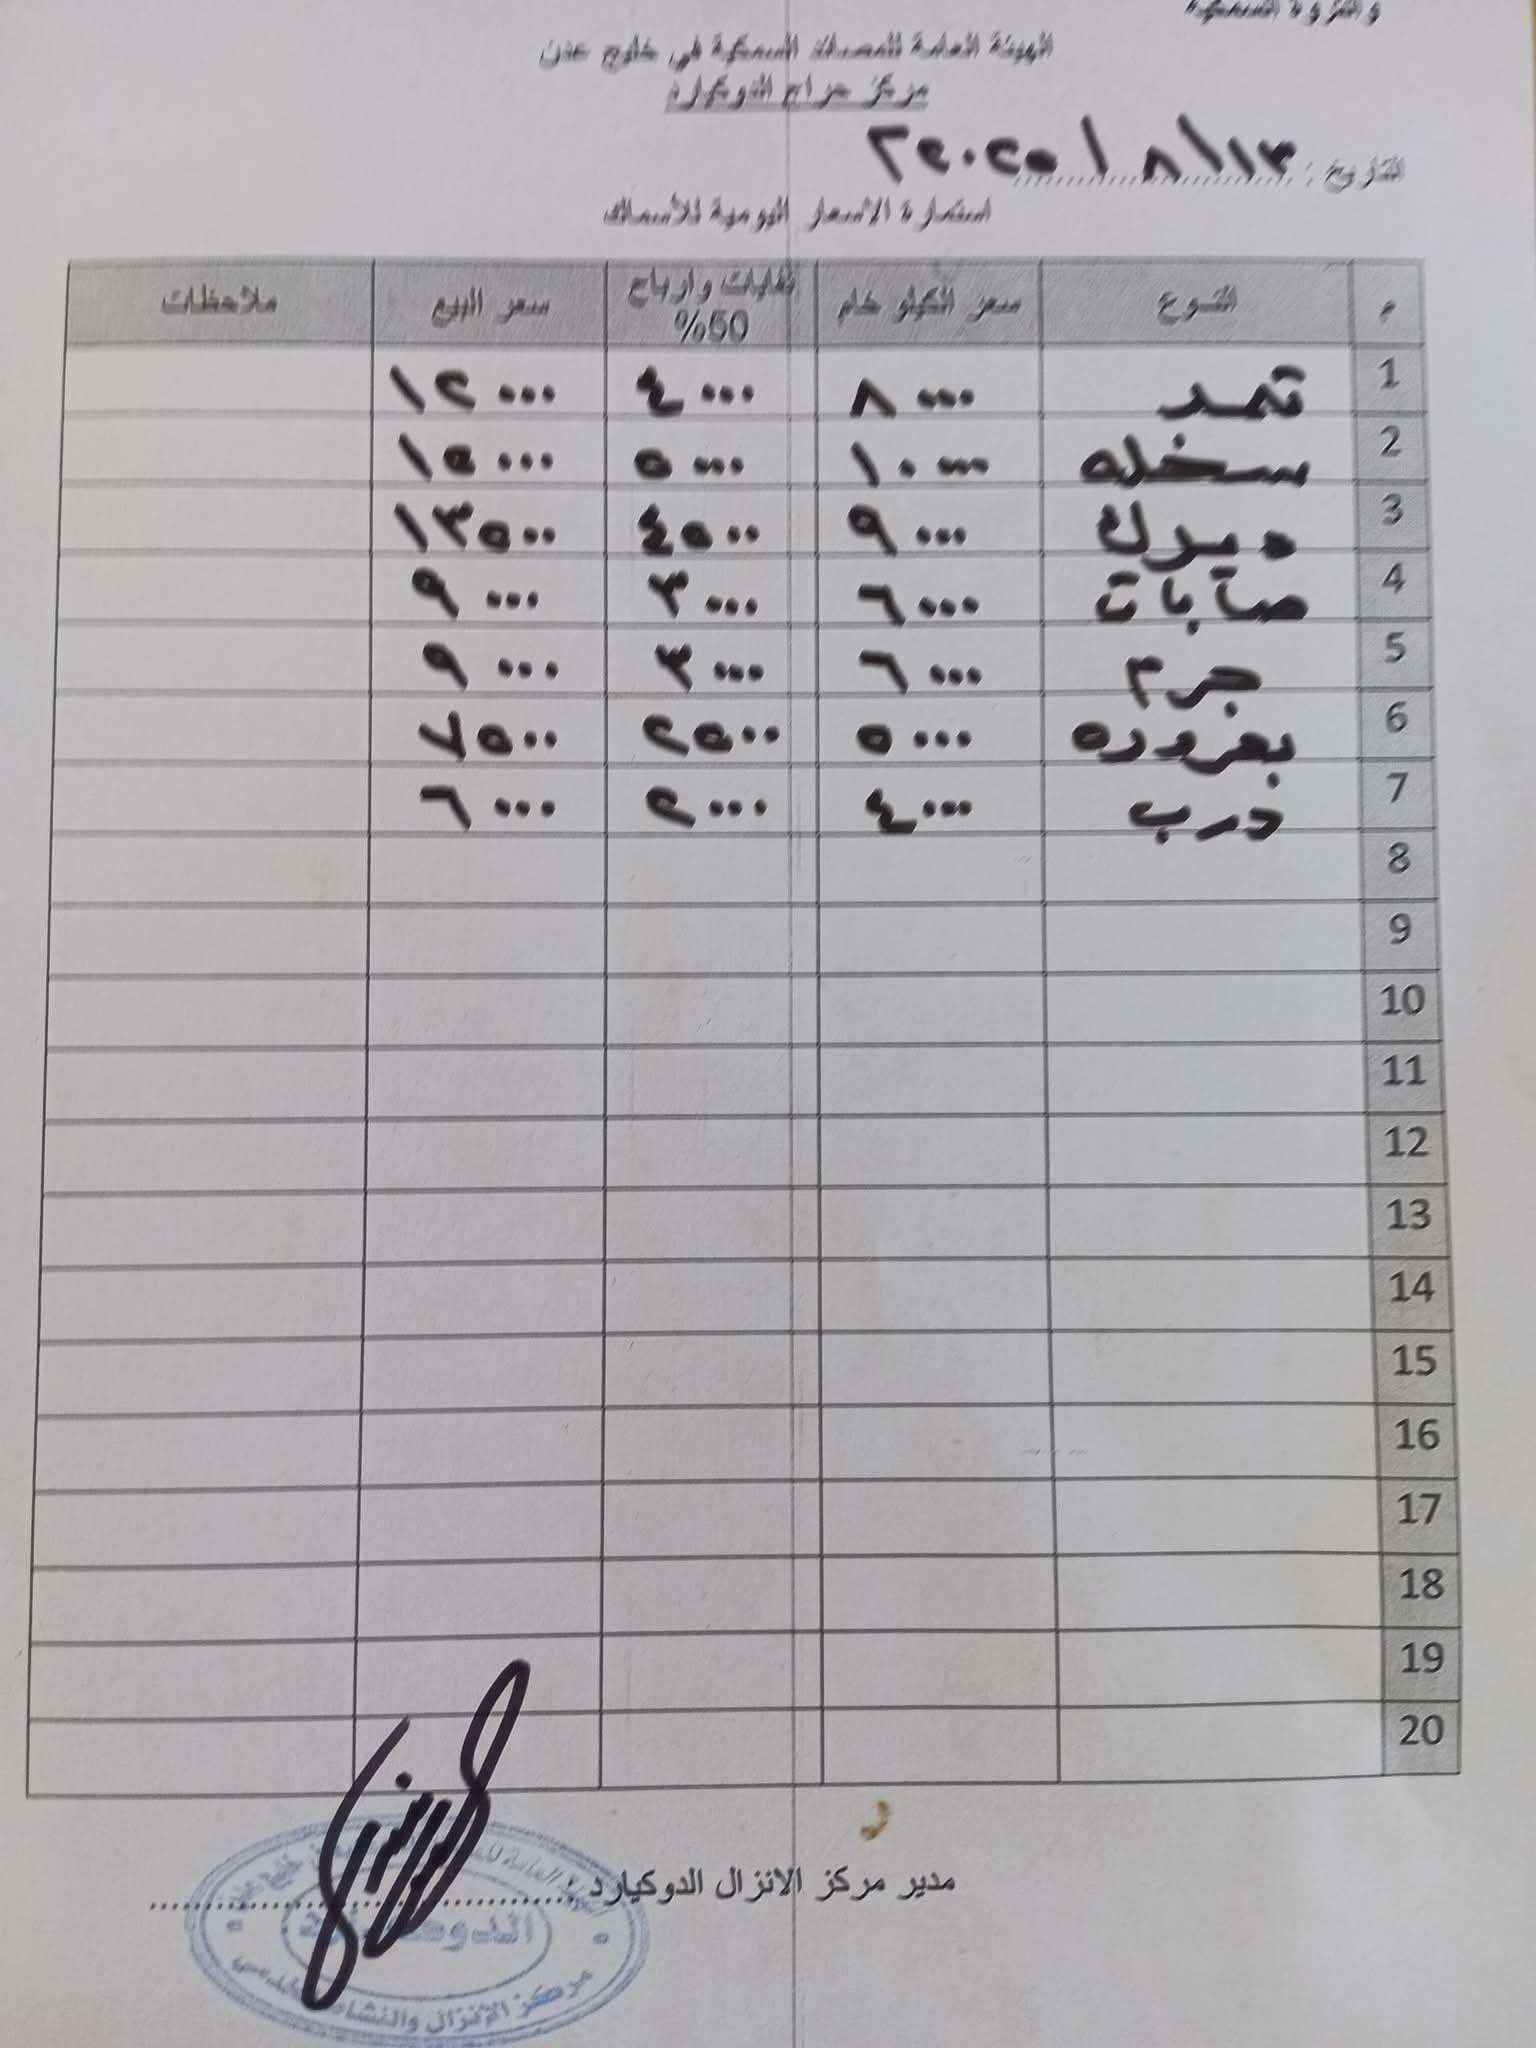 والثروة السمكية
الهيئة العامة للمصائد السمكية في خليج عدن
مركز حراج الدوكيارد
التاريخ : ١٣ / ٨ / ٢٠٢٥م
استمارة الاسعار اليومية للأسماك
م النوع سعر الكيلو خام نفايات وارباح 50% سعر البيع ملاحظات
1 ثمد ٨٠٠٠ ٤٠٠٠ ١٢٠٠٠
2 سخله ١٠٠٠٠ ٥٠٠٠ ١٥٠٠٠
3 ديرك ٩٠٠٠ ٤٥٠٠ ١٣٥٠٠
4 صابات ٦٠٠٠ ٣٠٠٠ ٩٠٠٠
5 جرم ٦٠٠٠ ٣٠٠٠ ٩٠٠٠
6 ٥٠٠٠ ٢٥٠٠ ٧٥٠٠
7 درب ٤٠٠٠ ٢٠٠٠ ٦٠٠٠
8
9
10
11
12
13
14
15
16
17
18
19
20
مدير مركز الانزال الدوكيارد :
مركز الانزال والنشاط